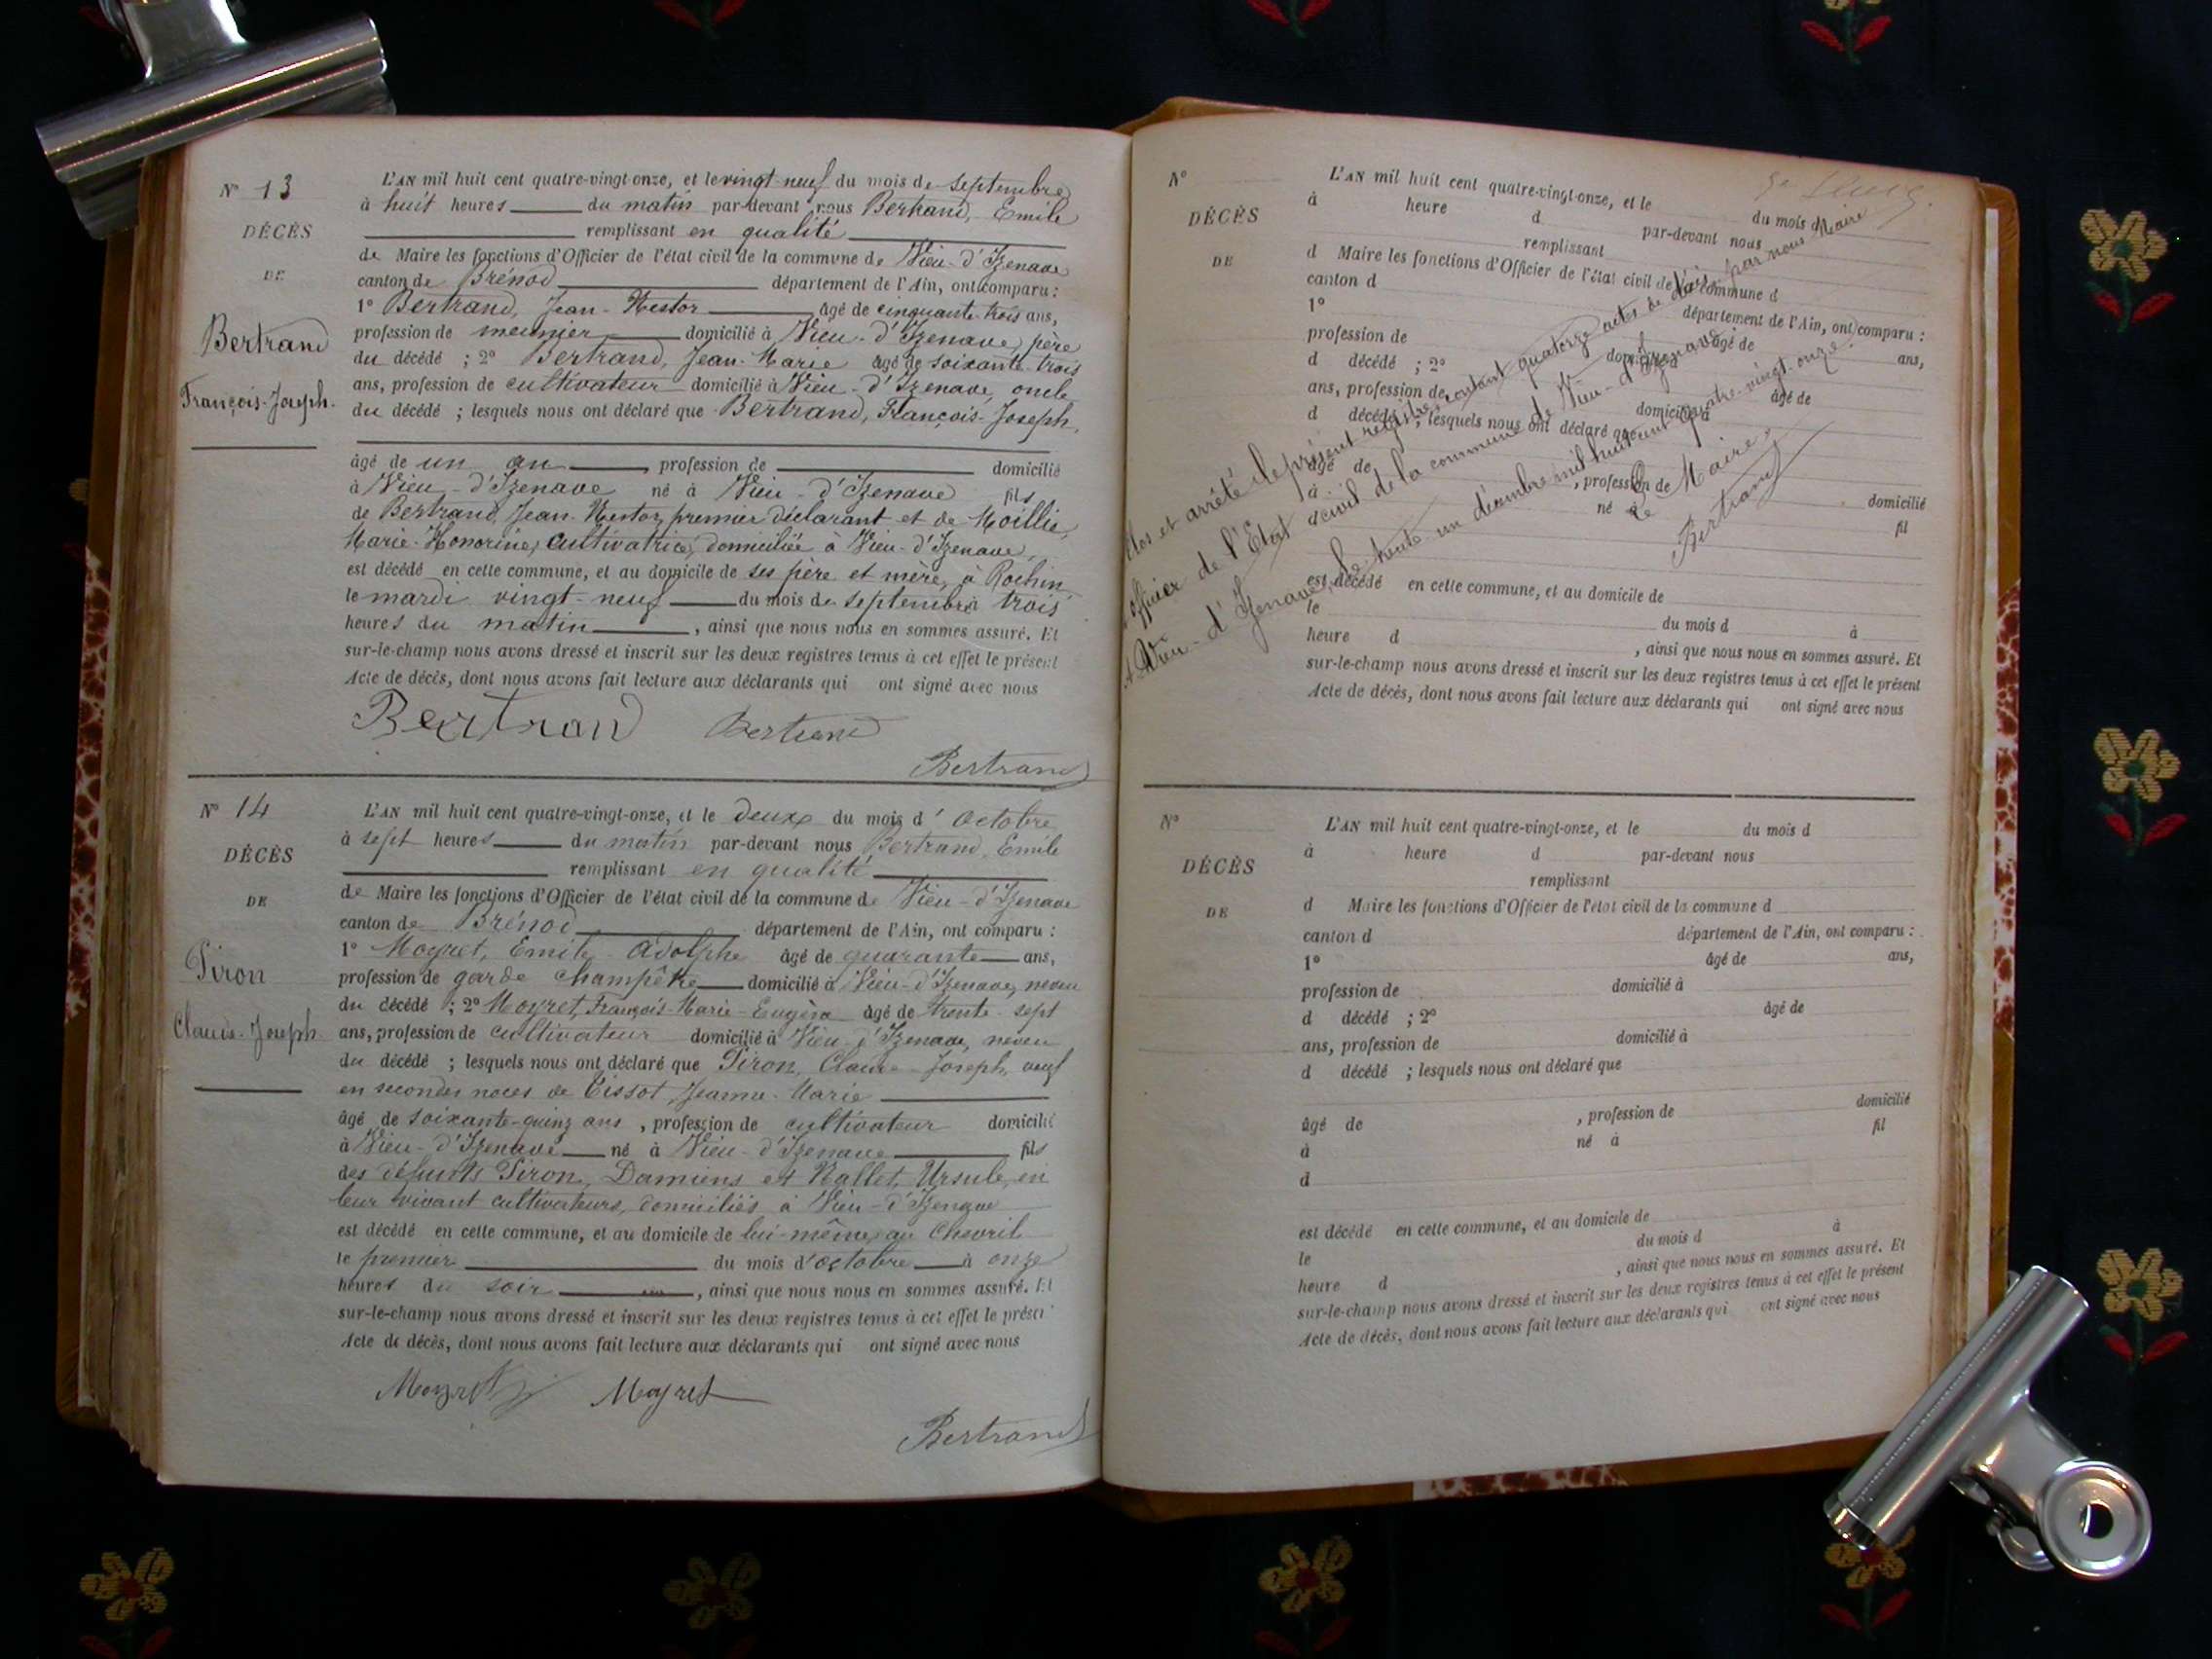 N° 13
DÉCÈS
DE
Bertrand
François-Joseph.
L'AN mil huit cent quatre-vingt-onze, et le vingt-neuf du mois de septembre
à huit heures du matin par-devant nous Bertrand, Emile
remplissant en qualité
de Maire les fonctions d'Officier de l'état civil de la commune de Vieu-d'Izenave
canton de Brénod département de l'Ain, ont comparu :
1° Bertrand, Jean-Nestor âgé de cinquante-trois ans,
profession de meunier domicilié à Vieu-d'Izenave, père
du décédé ; 2° Bertrand, Jean-Marie âgé de soixante-trois
ans, profession de cultivateur domicilié à Vieu-d'Izenave, oncle
du décédé ; lesquels nous ont déclaré que Bertrand, François-Joseph,
âgé de un an , profession de domicilié
à Vieu-d'Izenave né à Vieu-d'Izenave fils
de Bertrand, Jean-Nestor, premier déclarant et de Moillie,
Marie-Honorine, cultivatrice, domiciliée à Vieu-d'Izenave,
est décédé en cette commune, et au domicile de ses père et mère, à Rochin,
le mardi vingt-neuf du mois de septembre à trois
heures du matin , ainsi que nous nous en sommes assuré. Et
sur-le-champ nous avons dressé et inscrit sur les deux registres tenus à cet effet le présent
Acte de décès, dont nous avons fait lecture aux déclarants qui ont signé avec nous
Bertrand Bertrand
Bertrand
N° 14
DÉCÈS
DE
Piron
Claude-Joseph
L'AN mil huit cent quatre-vingt-onze, et le deux du mois d'octobre
à sept heures du matin par-devant nous Bertrand, Emile
remplissant en qualité
de Maire les fonctions d'Officier de l'état civil de la commune de Vieu-d'Izenave
canton de Brénod département de l'Ain, ont comparu :
1° Moyret, Emile Adolphe âgé de quarante ans,
profession de garde champêtre domicilié à Vieu-d'Izenave, neveu
du décédé ; 2° Moyret, François-Marie-Eugène âgé de trente-sept
ans, profession de cultivateur domicilié à Vieu-d'Izenave, neveu
du décédé ; lesquels nous ont déclaré que Piron, Claude-Joseph, veuf
en secondes noces de Tissot, Jeanne-Marie
âgé de soixante-quinz ans , profession de cultivateur domicilié
à Vieu-d'Izenave né à Vieu-d'Izenave fils
des défunts Piron, Damiens et Nallet, Ursule, en
leur vivant cultivateurs, domiciliés à Vieu-d'Izenave
est décédé en cette commune, et au domicile de lui-même, au Chevril
le premier du mois d'octobre à onze
heures du soir , ainsi que nous nous en sommes assuré. Et
sur-le-champ nous avons dressé et inscrit sur les deux registres tenus à cet effet le présent
Acte de décès, dont nous avons fait lecture aux déclarants qui ont signé avec nous
Moyret Moyret
Bertrand
N°
DÉCÈS
DE
L'AN mil huit cent quatre-vingt-onze, et le du mois d
à heure d par-devant nous
remplissant
d Maire les fonctions d'Officier de l'état civil de la commune d
canton d département de l'Ain, ont comparu :
1° âgé de ans,
profession de domicilié à
d décédé ; 2° âgé de
ans, profession de domicilié à
d décédé ; lesquels nous ont déclaré que
âgé de , profession de domicilié
à né à fil
est décédé en cette commune, et au domicile de
le du mois d à
heure d , ainsi que nous nous en sommes assuré. Et
sur-le-champ nous avons dressé et inscrit sur les deux registres tenus à cet effet le présent
Acte de décès, dont nous avons fait lecture aux déclarants qui ont signé avec nous
Clos et arrêté le présent registre contant quatorze actes de décès par nous Maire
officier de l'Etat civil de la commune de Vieu-d'Izenave
A Vieu-d'Izenave, le trente un décembre mil huit cent quatre-vingt-onze.
Le Maire,
Bertrand
N°
DÉCÈS
DE
L'AN mil huit cent quatre-vingt-onze, et le du mois d
à heure d par-devant nous
remplissant
d Maire les fonctions d'Officier de l'état civil de la commune d
canton d département de l'Ain, ont comparu :
1° âgé de ans,
profession de domicilié à
d décédé ; 2° âgé de
ans, profession de domicilié à
d décédé ; lesquels nous ont déclaré que
âgé de , profession de domicilié
à né à fil
d
est décédé en cette commune, et au domicile de
le du mois d à
heure d , ainsi que nous nous en sommes assuré. Et
sur-le-champ nous avons dressé et inscrit sur les deux registres tenus à cet effet le présent
Acte de décès, dont nous avons fait lecture aux déclarants qui ont signé avec nous